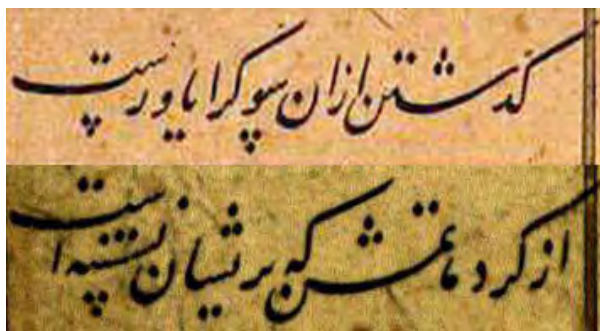 گذشتن ازان سو کرا یاورست
از کرد هاتش که بر تیسان نشسته است